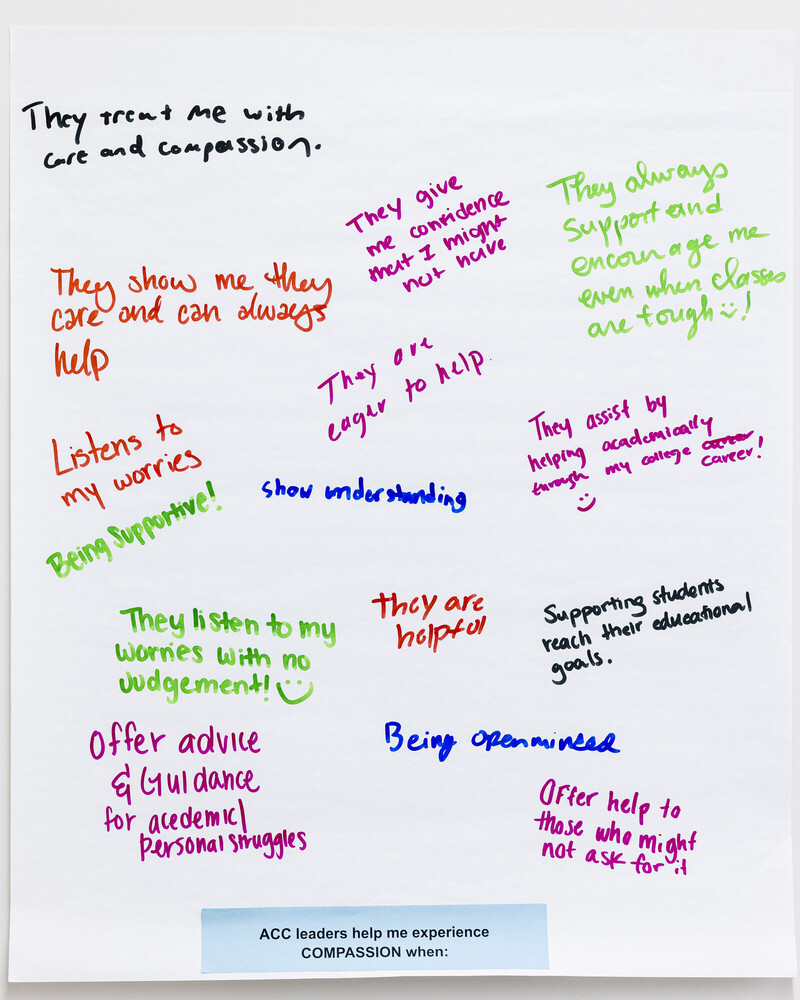 They treat me with
care and compassion.
They give
me confidence
that I might
not have
They always
support and
encourage me
even when classes
are tough!
They show me they
care and can always
help
They are
eager to help.
They assist by
helping academically
through my college career
career!
Listens to
my worries
show understanding
Being Supportive!
They listen to my
worries with no
Judgement!
They are
helpful
Supporting students
reach their educational
goals.
Offer advice
& Guidance
for acedemic/
personal struggles
Being openminded
Offer help to
those who might
not ask for it
ACC leaders help me experience
COMPASSION when: